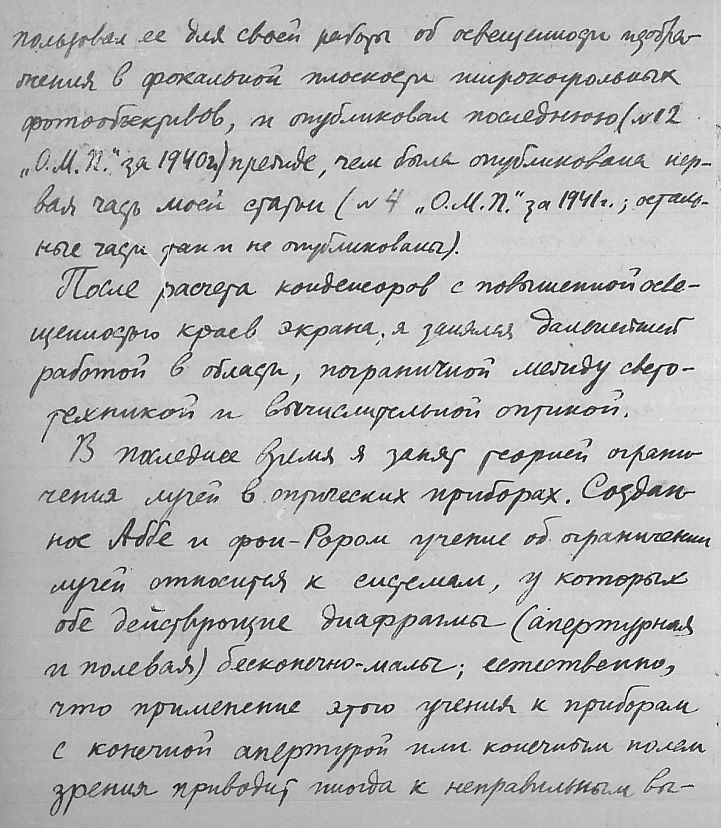 пользовал ее для своей работы об освещенности изобра-
жения в фокальной плоскости широкоугольных
фотообъективов, и опубликовал последнюю (№12
„О.М.П." за 1940г.) прежде, чем была опубликована пер-
вая часть моей статьи (№4 „О.М.П." за 1941г.; осталь-
ные части так и не опубликованы).
После расчета конденсоров с повышенной осве-
щенностью краев экрана, я занялся дальнейшей
работой в области, пограничной между свето-
техникой и вычислительной оптикой.
В последнее время я занят теорией ограни-
чения лучей в оптических приборах. Создан-
ное Аббе и фон-Рором учение об ограничении
лучей относится к системам, у которых
обе действующие диафрагмы (апертурная
и полевая) бесконечно-малы; естественно,
что применение этого учения к приборам
с конечной апертурой или конечным полем
зрения приводит иногда к неправильным вы-